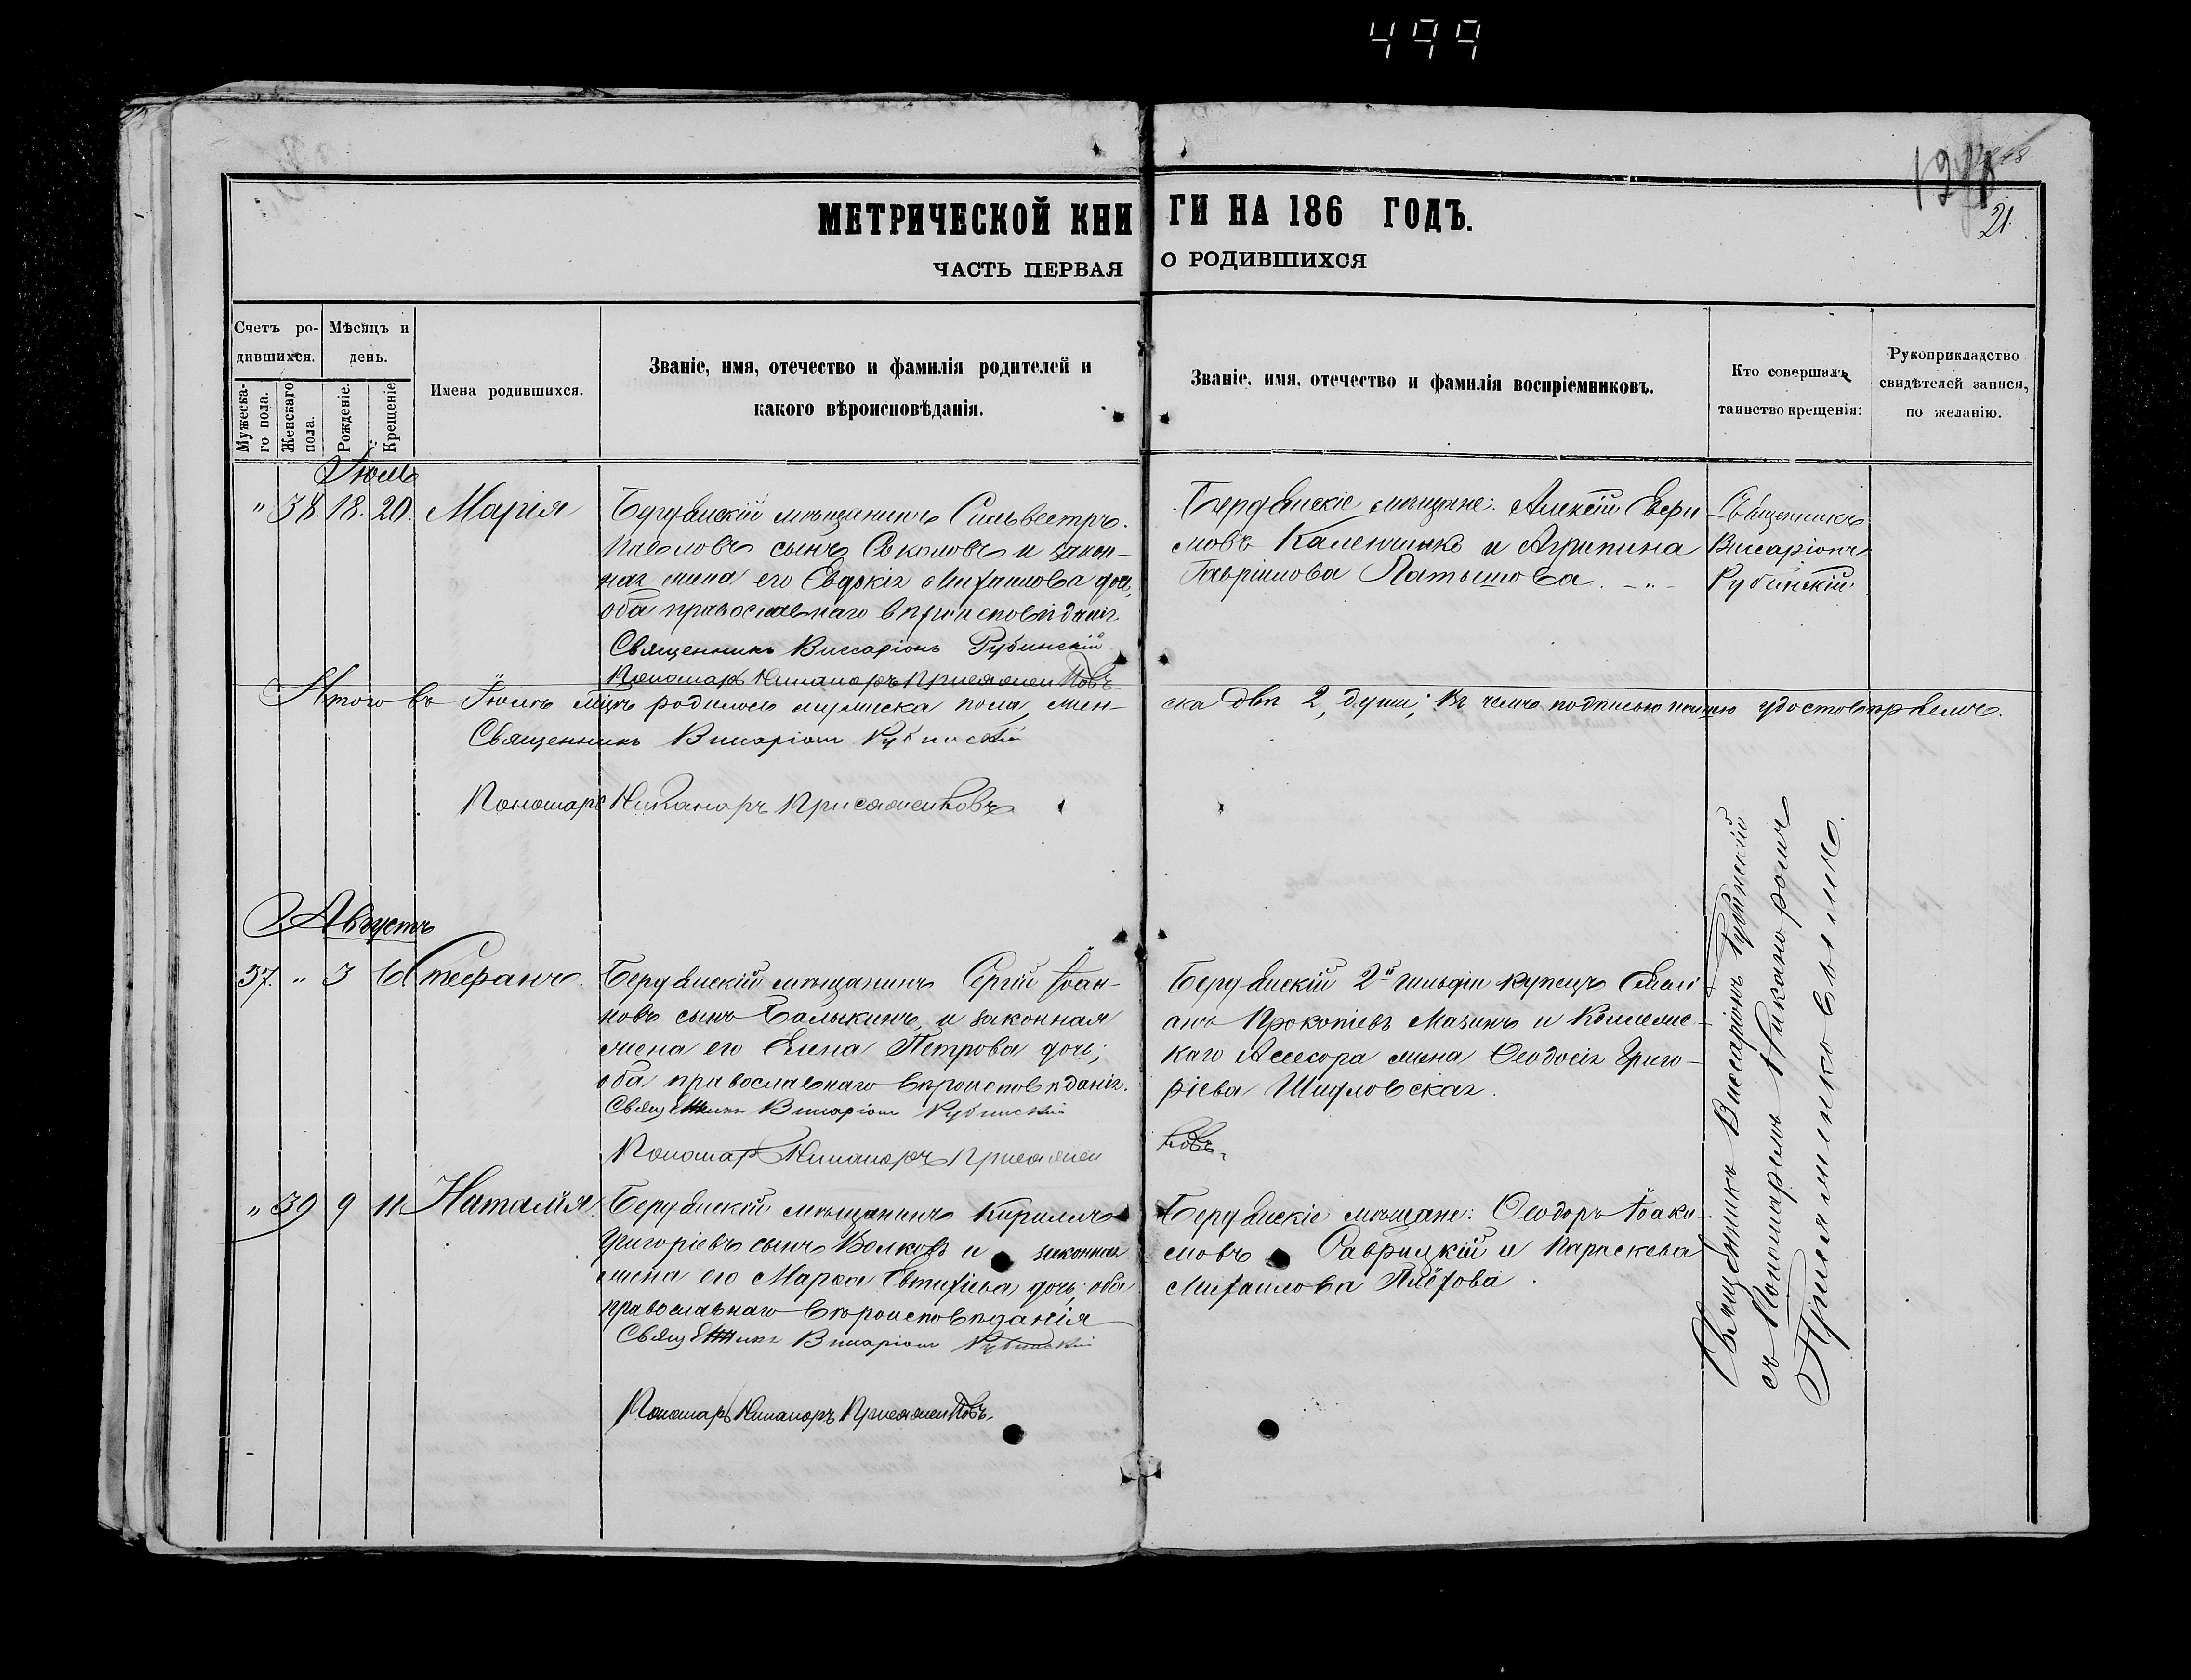 499
21.
МЕТРИЧЕСКОЙ КНИГИ НА 186 ГОДЪ.
ЧАСТЬ ПЕРВАЯ О РОДИВШИХСЯ
Счетъ родившихся.
Мѣсяцъ и день.
Мужескаго пола.
Женскаго пола.
Рожденіе.
Крещеніе
Имена родившихся.
Званіе, имя, отечество и фамилія родителей и
какого вѣроисповѣданія.
Званіе, имя, отечество и фамилія воспріемниковъ.
Кто совершалъ
таинство крещенія:
Рукоприкладство
свидѣтелей записи,
по желанію.
Іюль
" 38. 18. 20. Марія
Бердянскій мѣщанинъ Сильвестръ
Павловъ сынъ Соколовъ и закон-
ная жена его Евдокія Михаилова дочь,
оба православнаго вѣроисповѣданія.
Священникъ Виссаріонъ Рубинскій
Пономарь Никаноръ Присяженковъ
Бердянскіе мѣщане: Алексій Евфи
мовъ Каленчинко и Агрипина
Гавріилова Латышова. - " -
Священникъ
Виссаріонъ
Рубинскій
Итого въ Іюлѣ мѣцѣ родилось мужеска пола, жен-
ска двѣ 2, души; въ чемъ подписью нашею удостовѣряемъ.
Священникъ Виссаріонъ Рубинскій
Пономарь Никаноръ Присяженковъ
Августъ
37. " 3 6 Стефанъ.
Бердянскій мѣщанинъ Сергій Іоан-
новъ сынъ Балыкинъ, и законная
жена его Елена Петрова дочь;
оба православнаго вѣроисповѣданія.
Священникъ Виссаріонъ Рубинскій
Пономарь Никаноръ Присяжен
ковъ.
Бердянскій 2й гильдіи купецъ
анъ Прокопіевъ Мазинъ и Коллежс-
каго Ассесора жена Ѳеодосія Григо-
ріева Шидловская.
" 39 9 11. Наталія
Бердянскій мѣщанинъ Кириллъ
Григоріевъ сынъ Волковъ и законная
жена его Марѳа Евтихіева дочь, оба
православнаго вѣроисповѣданія
Священникъ Виссаріонъ Рубинскій
Пономарь Никаноръ Присяженковъ.
Бердянскіе мѣщане: Ѳеодоръ Іоаки-
мовъ Саврицкій и Параскева
Михаилова
Священникъ Виссаріонъ Рубинскій
съ Пономаремъ Никаноромъ
Присяженковымъ.